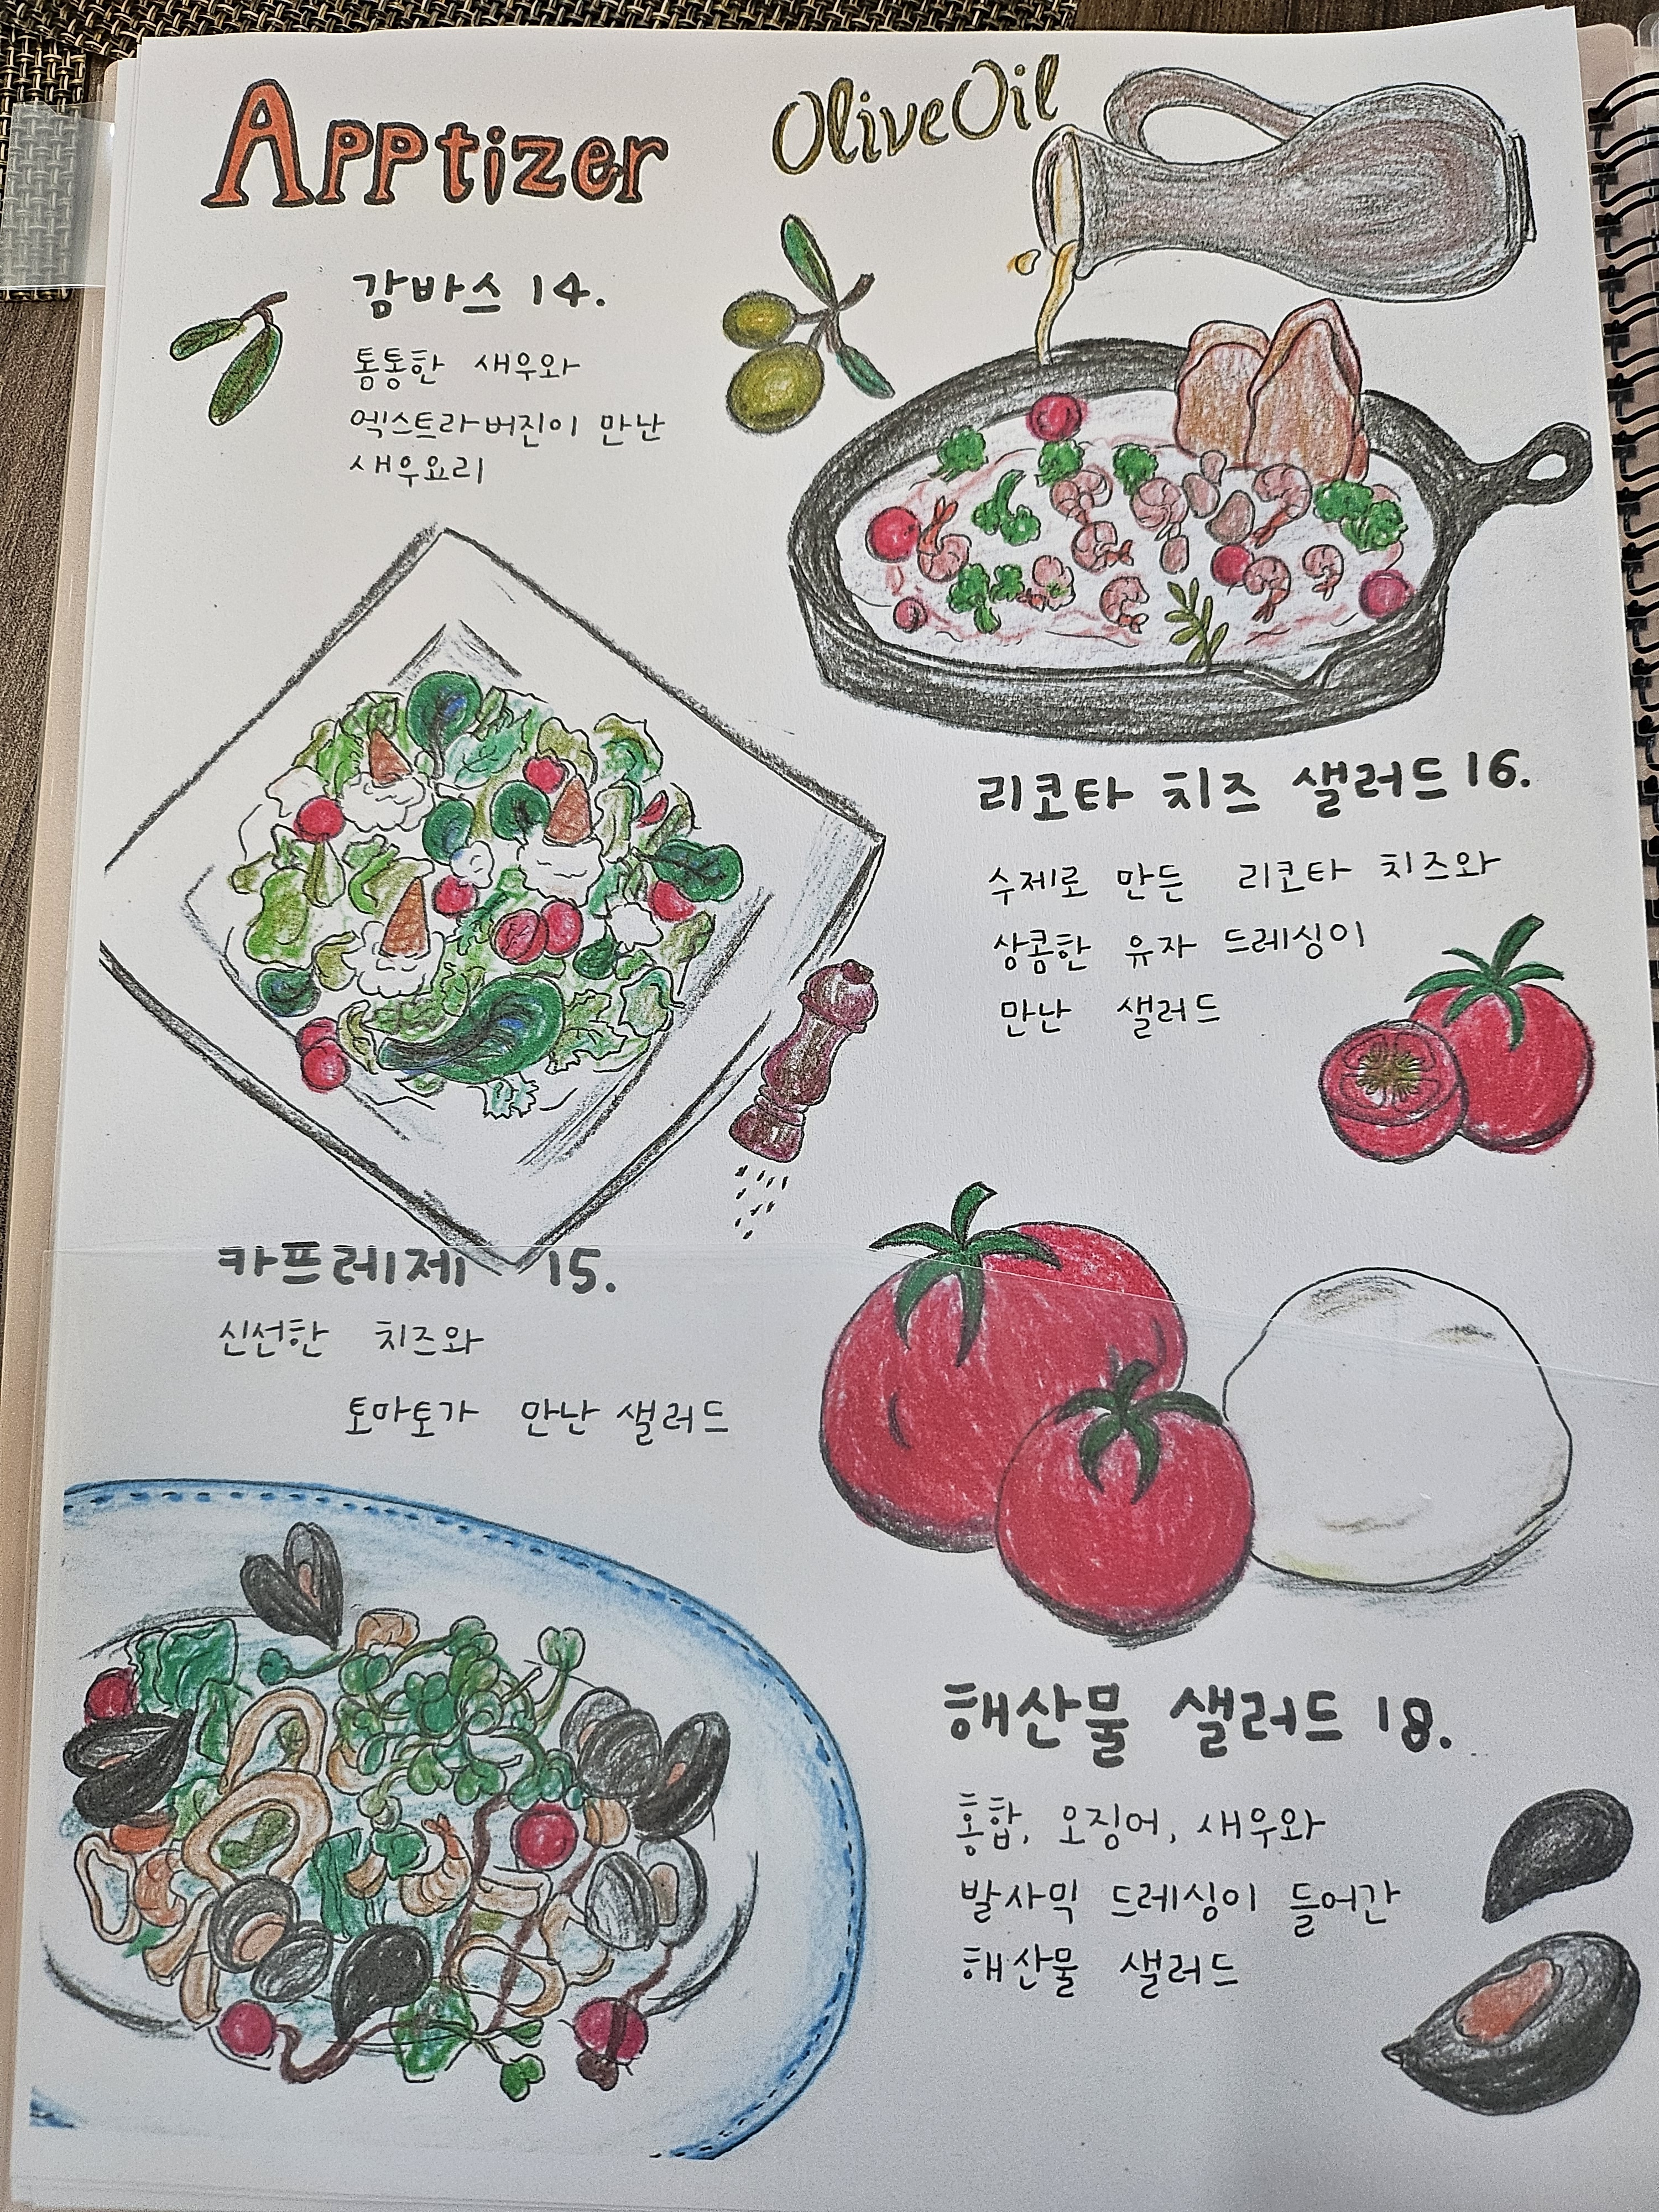 Apptizer
Olive Oil
감바스 14.
통통한 새우와
엑스트라버진이 만난
새우요리
리코타 치즈 샐러드 16.
수제로 만든 리코타 치즈와
상콤한 유자 드레싱이
만난 샐러드
카프레제 15.
신선한 치즈와
토마토가 만난 샐러드
해산물 샐러드 18.
홍합, 오징어, 새우와
발사믹 드레싱이 들어간
해산물 샐러드